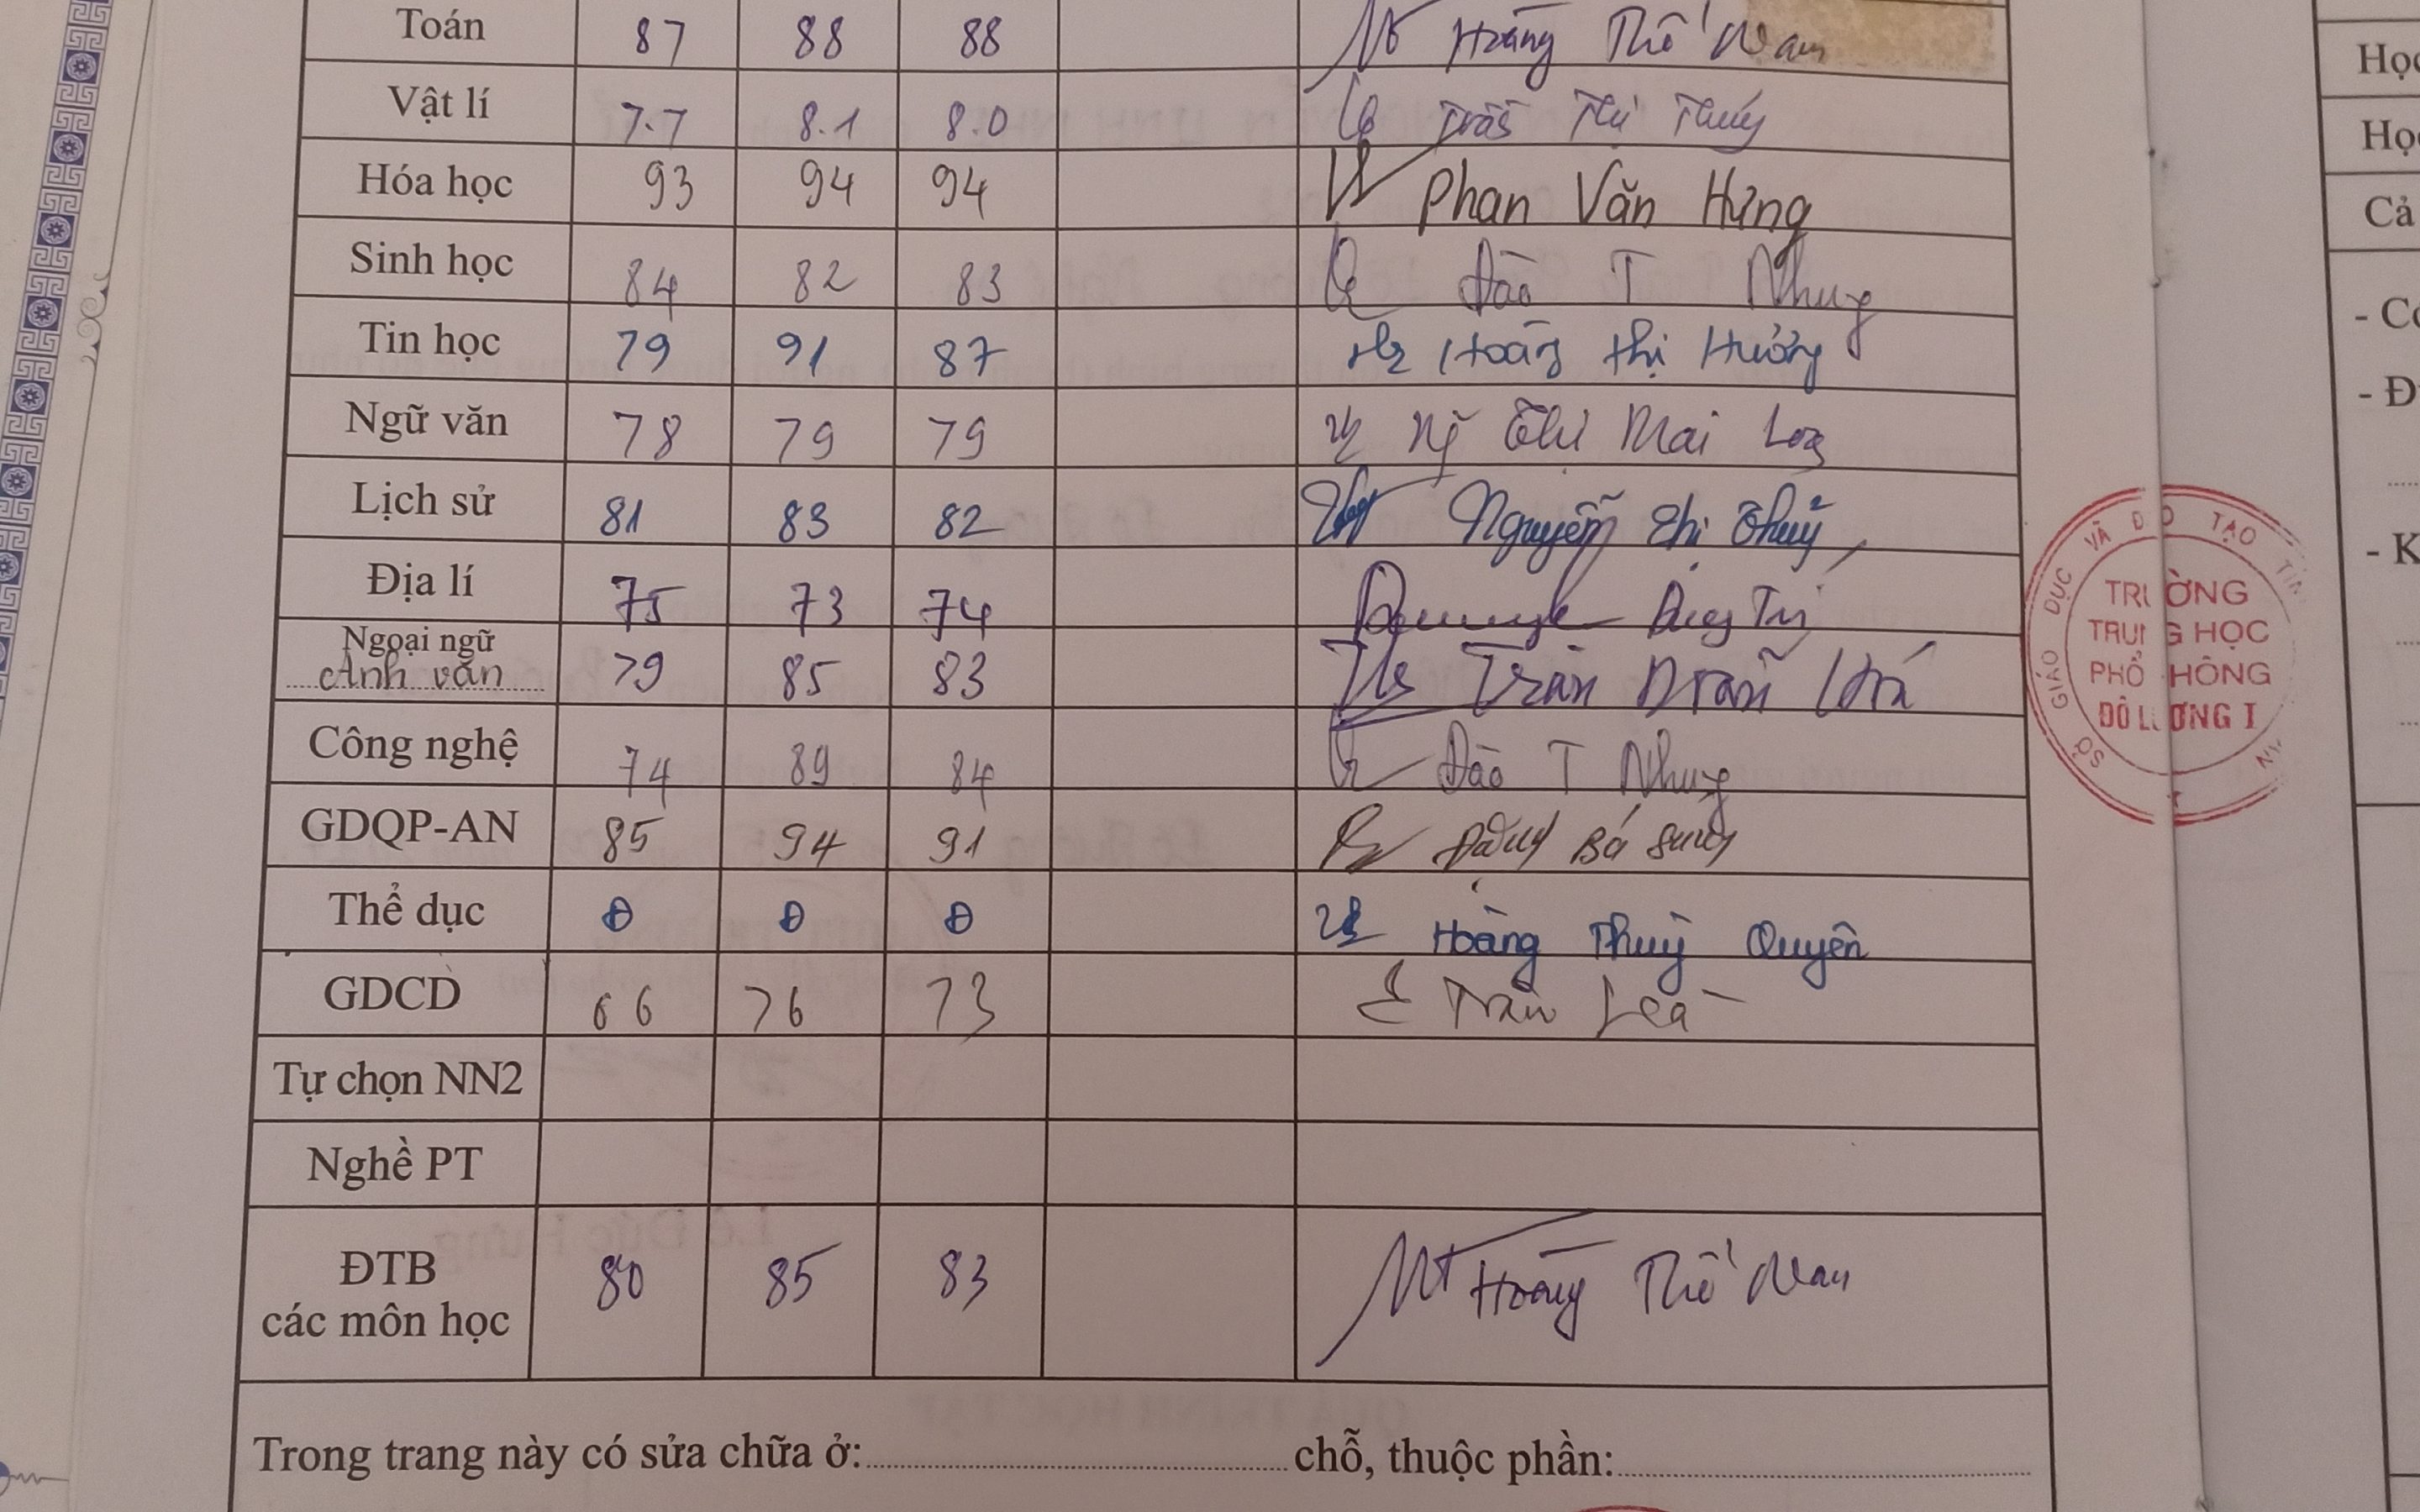 Toán 87 88 88 Hoàng Thế Nam
Vật lí 7.7 8.1 8.0 Trần Thị Thuý
Hóa học 93 94 94 Phan Văn Hưng
Sinh học 84 82 83 Đào T Nhung
Tin học 79 91 87 Hoàng Thị Hường
Ngữ văn 78 79 79 Thị Mai
Lịch sử 81 83 82 Nguyễn Thị Thuỷ
Địa lí 75 73 74
Ngoại ngữ
Anh văn 79 85 83 Trần
Công nghệ 74 89 84 Đào T Nhung
GDQP-AN 85 94 91 Bá
Thể dục Đ Đ Đ Hoàng Thuỳ Quyên
GDCD 66 76 73 Trần
Tự chọn NN2
Nghề PT
ĐTB
các môn học 80 85 83 Hoàng Thế Nam
Trong trang này có sửa chữa ở: chỗ, thuộc phần:
SỞ GIÁO DỤC VÀ ĐÀO TẠO
TRƯỜNG
TRUNG HỌC
PHỔ THÔNG
ĐÔ LƯƠNG I
Cả
- K